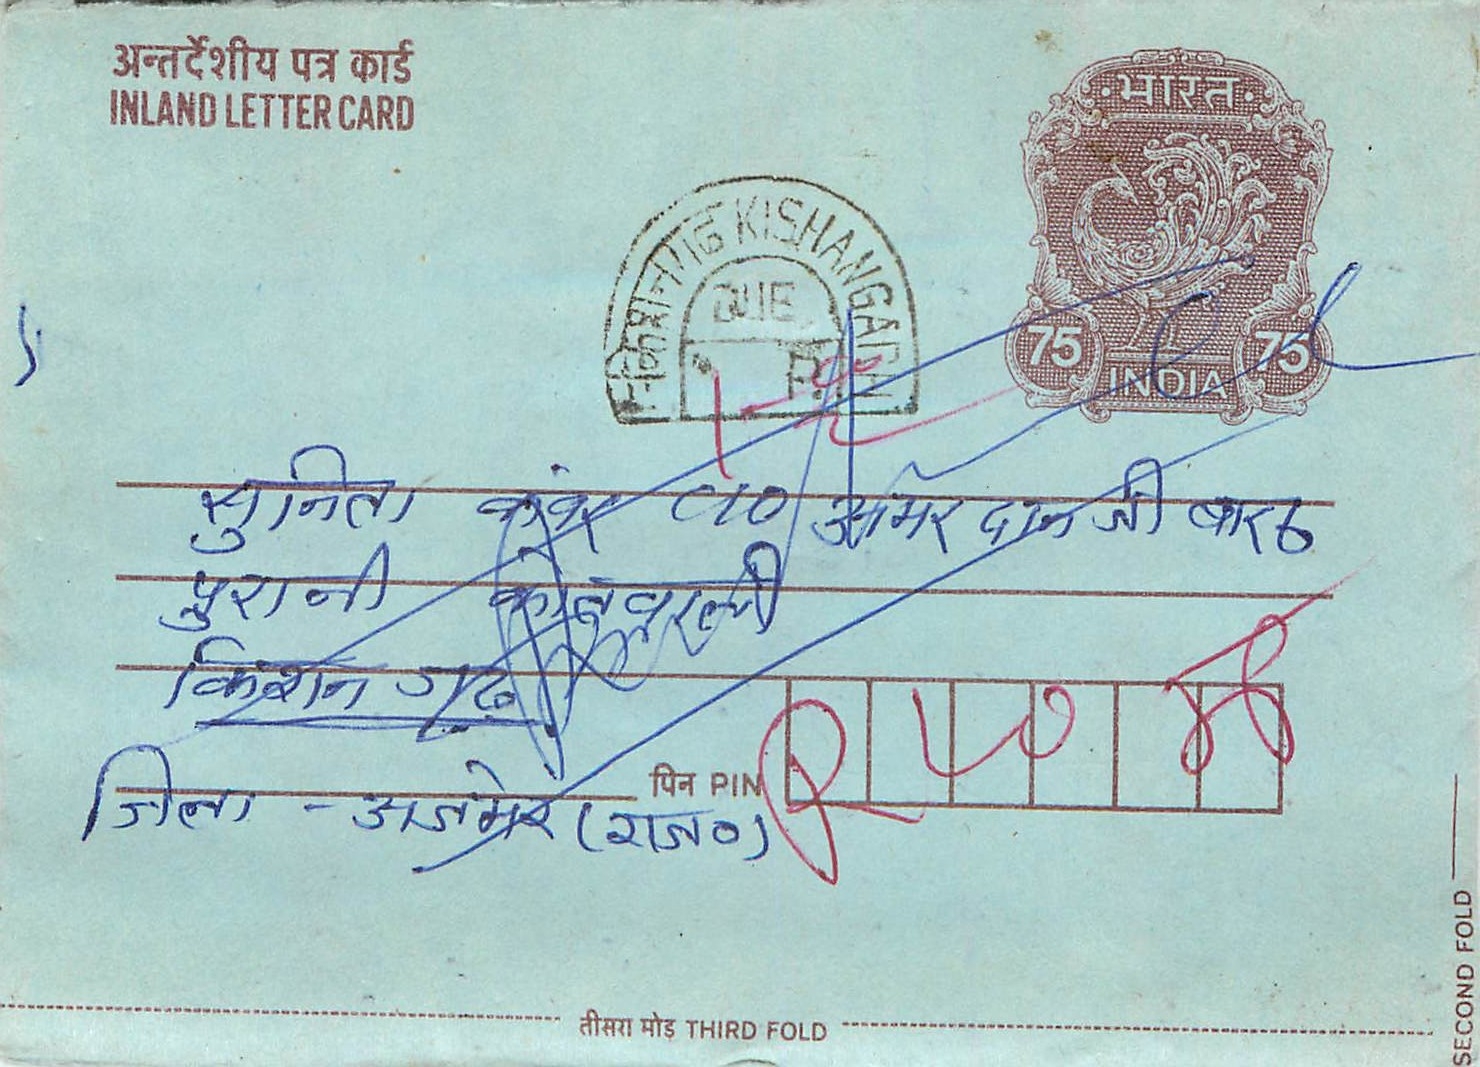 अन्तर्देशीय पत्र कार्ड
INLAND LETTER CARD
भारत
75 75
INDIA
किशनगढ़ KISHANGARH
DUE
सुनिता कंवर C/O अमर दान जी बारठ
पुरानी कोतवाली
किशन गढ़
जिला - अजमेर (राज०)
पिन PIN
तीसरा मोड़ THIRD FOLD
SECOND FOLD